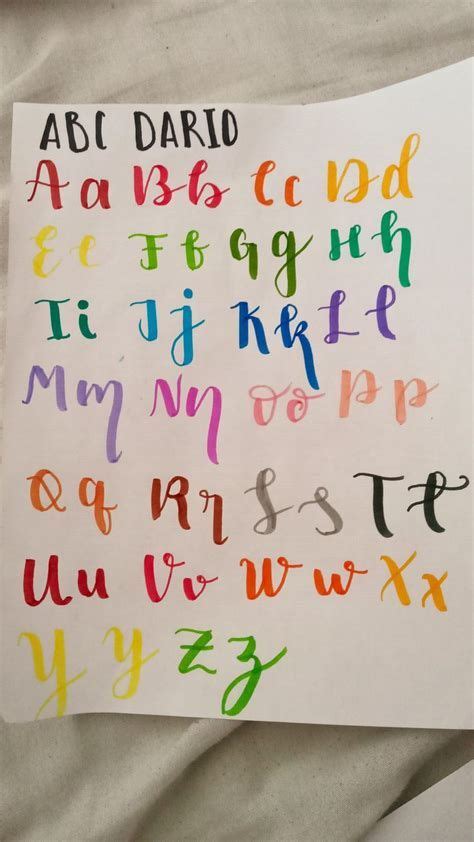 ABC DARIO
Aa Bb Cc Dd
Ee Ff Gg Hh
Ii Jj Kk Ll
Mm Nn Oo Pp
Qq Rr Ss Tt
Uu Vv Ww Xx
Yy Zz